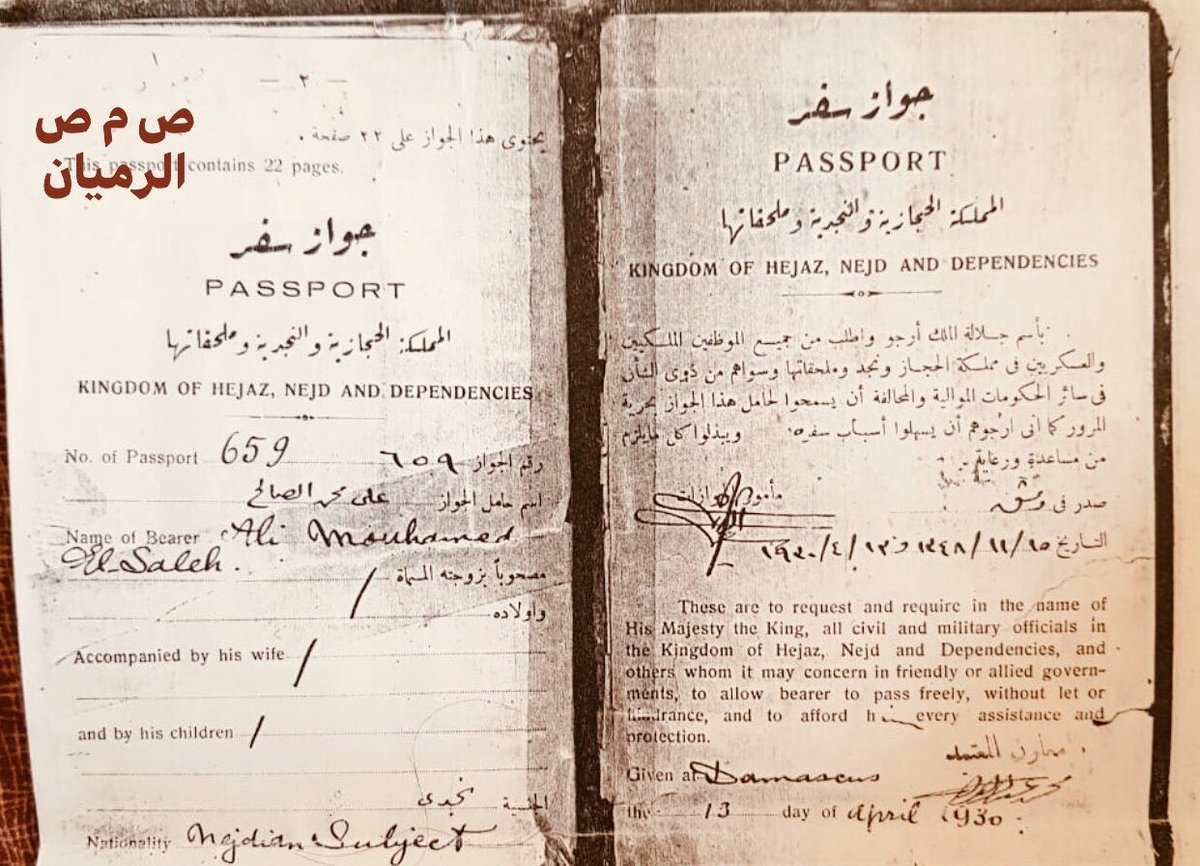 ص م ص
الرميان
— ٢ —
يحتوى هذا الجواز على ٢٢ صفحة .
This passport contains 22 pages.
جواز سفر
PASSPORT
المملكة الحجازية والنجدية وملحقاتها
KINGDOM OF HEJAZ, NEJD AND DEPENDENCIES
No. of Passport 659 رقم الجواز ٦٥٩
اسم حامل الجواز على محمد الصالح
Name of Bearer Ali Mouhamed
El-Saleh.
مصحوباً بزوجته المسماة /
واولاده
Accompanied by his wife /
and by his children /
الجنسية نجدى
Nationality Nejdian Subject
جواز سفر
PASSPORT
المملكة الحجازية والنجدية وملحقاتها
KINGDOM OF HEJAZ, NEJD AND DEPENDENCIES
بأسم جلالة الملك أرجو واطلب من جميع الموظفين الملكيين
والعسكريين فى مملكة الحجاز ونجد وملحقاتها وسواهم من ذوى الشأن
فى سائر الحكومات الموالية والمحالفة أن يسمحوا لحامل هذا الجواز بحرية
المرور كما انى ارجوهم أن يسهلوا أسباب سفره ويبذلوا كل مايلزم
من مساعدة ورعاية .
مأمور الجوازات
صدر فى دمشق
التاريخ ١٥/١١/١٣٤٨ و ١٣/٤/١٩٣٠
These are to request and require in the name of
His Majesty the King, all civil and military officials in
the Kingdom of Hejaz, Nejd and Dependencies, and
others whom it may concern in friendly or allied govern-
ments, to allow bearer to pass freely, without let or
hindrance, and to afford h every assistance and
protection.
معاون المعتمد
Given at Damascus
the 13 day of April 1930.